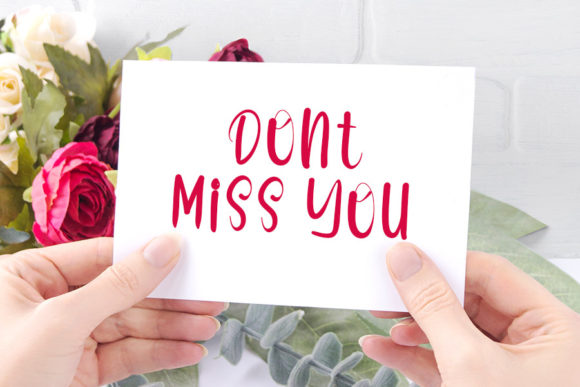 DONt
MiSS YOU